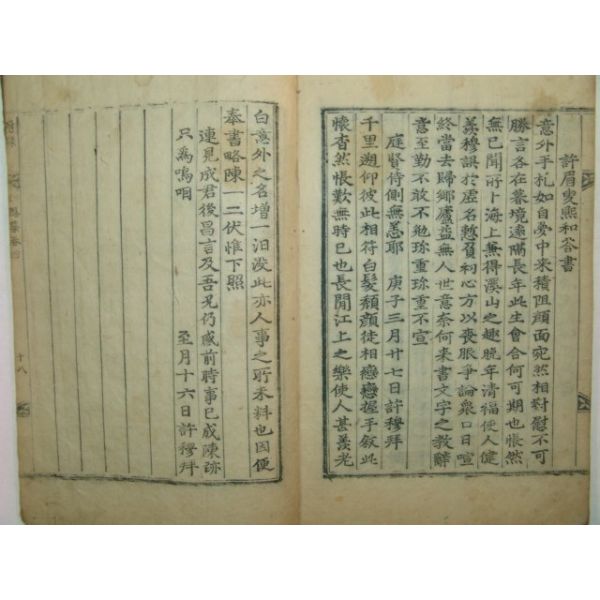 許眉叟熙和答書
意外手札如自夢中來積阻顔面宛然相對慰不可
勝言各在暮境遠隔長年此生會合何可期也悵然
無已聞所卜海上無得溪山之趣晩年清福使人健
羨穆誤於虛名慙負初心方以喪服爭論衆口日喧
終當去歸鄉廬益無人世意奈何來書文字之敎辭
意至勤不敢不勉珎重珎重不宣
庭賢侍側無恙耶 庚子三月廿七日許穆拜
千里遡仰彼此相符白髮頹顔徒相戀戀握手敘此
懷杳然悵歎無時已也長閒江上之樂使人甚羨光
白意外之名增一汨沒此亦人事之所未料也因便
奉書略陳一二伏惟下照
連見成君後昌言及吾兄仍感前時事已成陳跡
只爲嗚咽 至月十六日許穆拜
十八